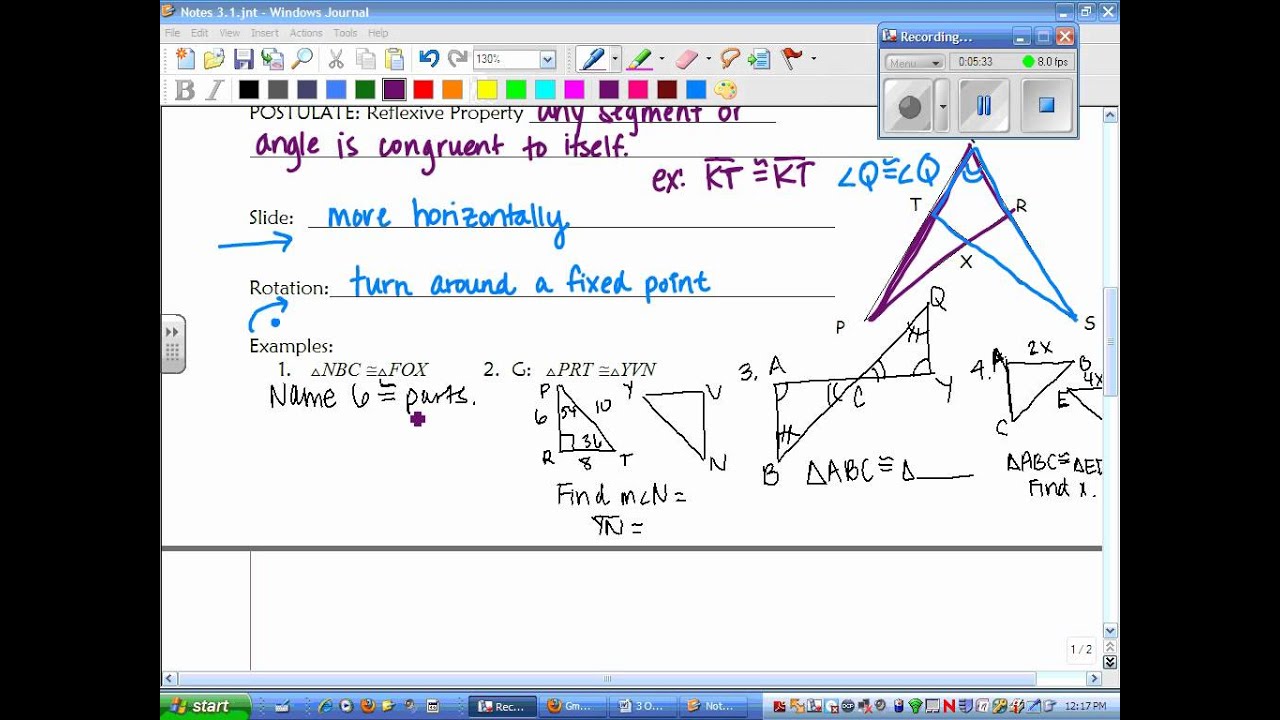 Notes 3.1.jnt - Windows Journal
File Edit View Insert Actions Tools Help
130%
Recording...
Menu 0:05:33 8.0 fps
B I
POSTULATE: Reflexive Property any segment or
angle is congruent to itself.
ex: KT ≅ KT ∠Q≅∠Q
T R
X
P S
Slide: move horizontally
Rotation: turn around a fixed point
Examples:
1. △NBC ≅△FOX
Name 6 ≅ parts.
2. G: △PRT ≅△YVN
P 6 54 10 36 R 8 T
Y V N
Find m∠N =
YN =
3. A B C Q Y
△ABC ≅ △
4. A 2x B C E 4x
△ABC≅△ED
Find x.
1 / 2
start Rec... Gm... 3 O... Not... 12:17 PM